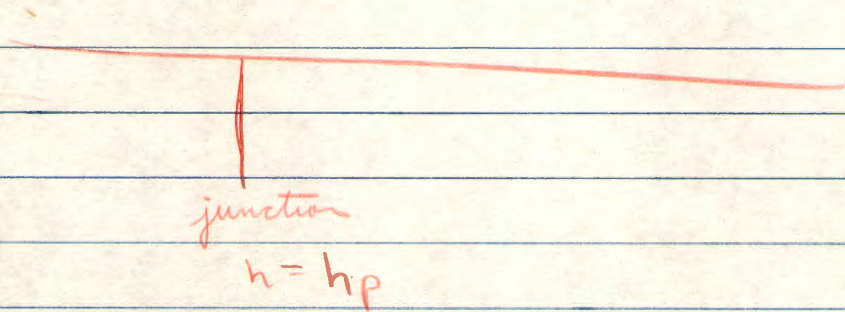 junction
h = hp